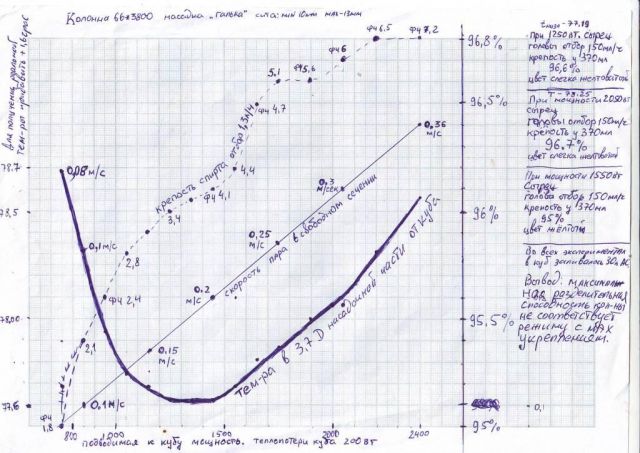 Колонна 66×3800 насадка „галька" сита: min 10мм max-13мм
для получения реальной
тем-ры прибавить +1,6
96,8%
96,5%
96%
95,5%
95%
0,1
78.7
78,5
78,00
77.6
800
1500
2000
2400
0,08 м/с
0,1 м/с
0,1 м/с
0.15
м/с
0.2
м/с
0,25
м/с
0,3
м/сек
0,36
м/с
ФЧ
1,8
2,1
ФЧ 2,4
2,8
3,4
ФЧ 4,1
4,4
ФЧ 4.7
5.1
ФЧ 5,6
ФЧ 6
ФЧ 6.5
ФЧ 7,2
крепость спирта отбор 1,3 л/ч
скорость пара в свободном сечении
тем-ра в 3,7 D насадочной части от куба
подводимая к кубу мощность. теплопотери куба 200 вт
77.19
при 1250 вт. Сырец
головы отбор 150мл/ч
крепость у 370мл
96,6%
цвет слегка желтоватый
При мощности 2050вт
Сырец
головы отбор 150мл/ч
крепость у 370мл
96.7%
цвет слегка желтоватый
При мощности 1550вт
Сырец
голова отбор 150 мл/ч
крепость у 370мл
95%
цвет желтый
Во всех экспериментах
в куб заливалось
Вывод: максималь-
ная разделительная
способность кол-ны
не соответствует
режиму с мах
укреплением.